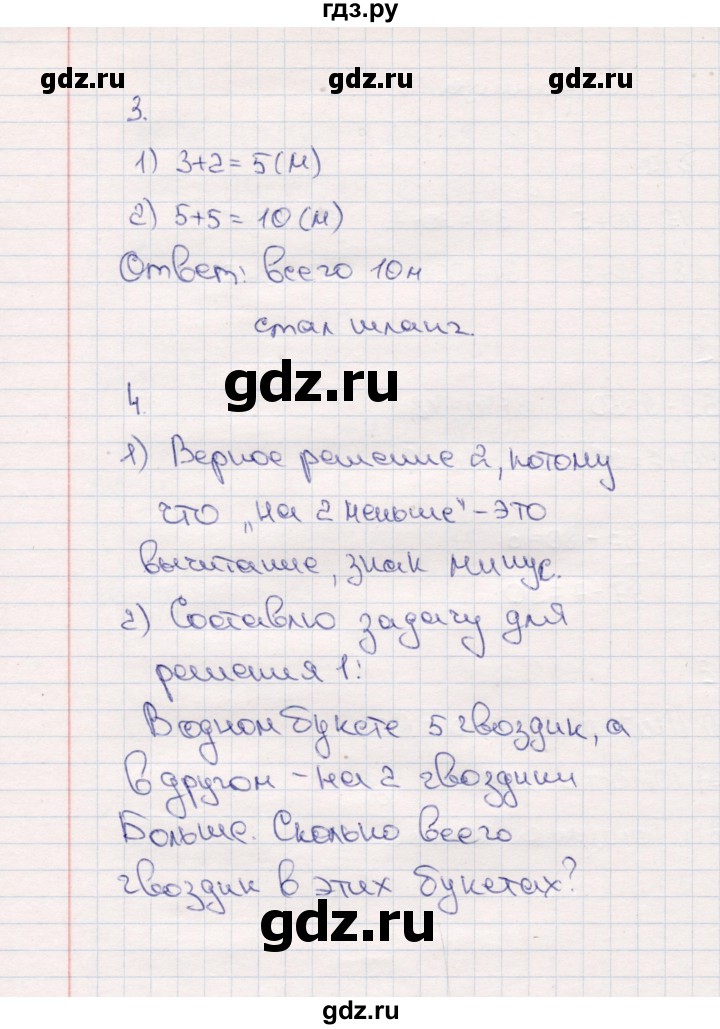 гдз.ру
gdz.ru gdz.ru gdz.ru
3.
1) 3+2=5(м)
2) 5+5=10(м)
Ответ: всего 10м
стал шланг.
gdz.ru
4.
1) Верное решение 2, потому
что „на 2 меньше“ - это
вычитание, знак минус.
2) Составлю задачу для
решения 1:
В одном букете 5 гвоздик, а
в другом - на 2 гвоздики
больше. Сколько всего
гвоздик в этих букетах?
gdz.ru
gdz.ru